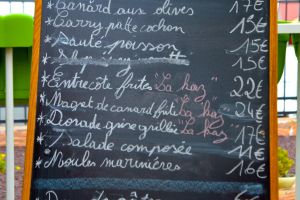 *Canard aux olives 17€
*Carry patte cochon 15€
*Sauté poisson 15€
15€
*Entrecôte frites "La haz" 22€
*Magret de canard frite "La haz" 24€
*Dorade grise grillée "La haz" 17€
*Salade composée 11€
*Moules marinières 16€